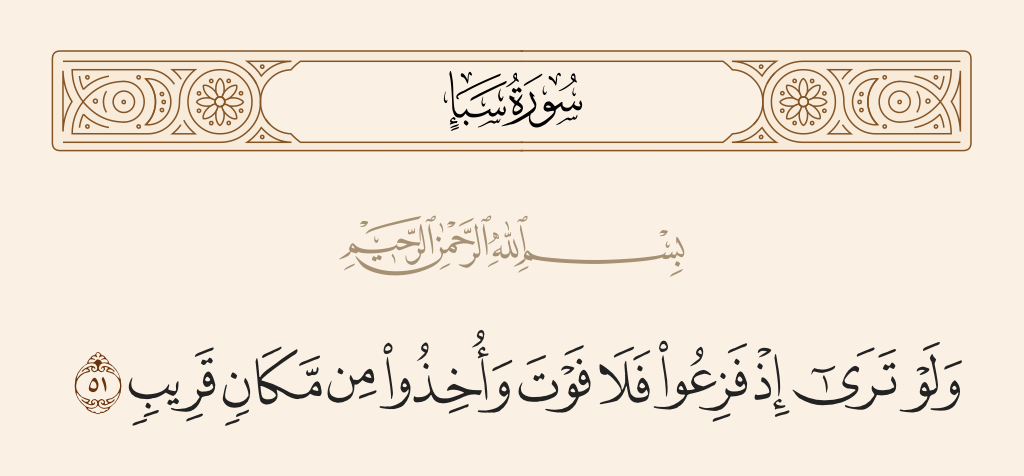 سُورَةُ سَبَإٍ
بِسْمِ ٱللَّهِ ٱلرَّحْمَٰنِ ٱلرَّحِيمِ
وَلَوْ تَرَىٰٓ إِذْ فَزِعُوا۟ فَلَا فَوْتَ وَأُخِذُوا۟ مِن مَّكَانٍ قَرِيبٍ ٥١